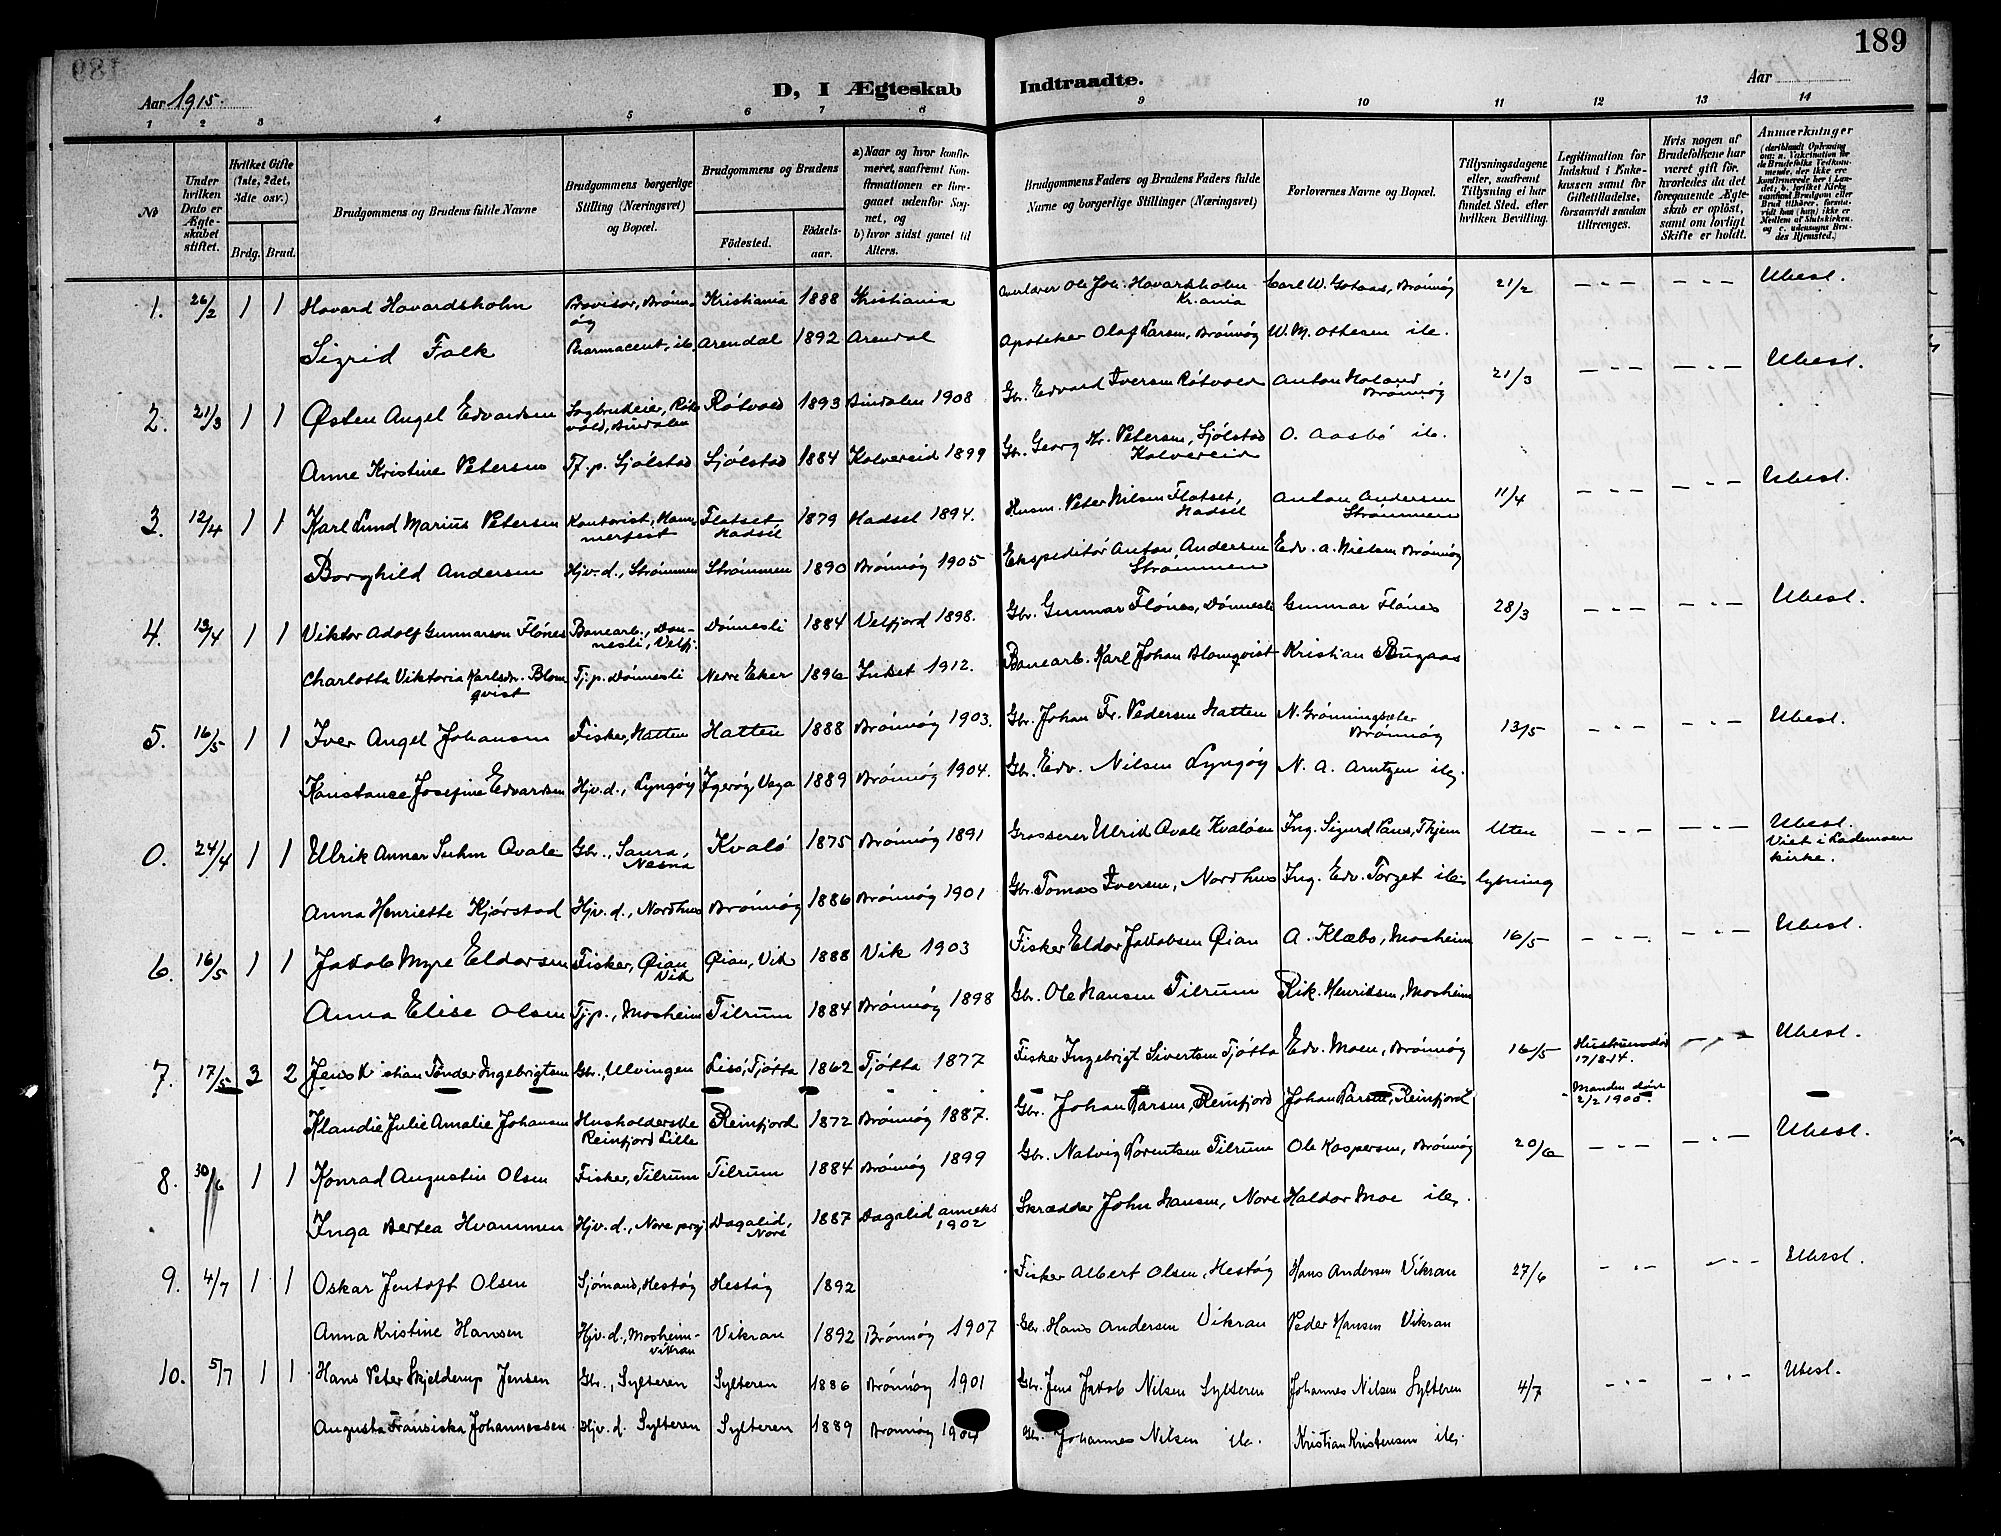 189
Aar 1915.
D, I Ægteskab Indtraadte.
Aar
1 2 3 4 5 6 7 8 9 10 11 12 13 14
No
Under hvilken Dato er Ægteskabet stiftet.
Hvilket Gifte (1ste, 2det, 3die osv.)
Brdg. Brud.
Brudgommens og Brudens fulde Navne
Brudgommens borgerlige Stilling (Næringsvei) og Bopæl.
Brudgommens og Brudens
Födested.
Födselsaar.
a) Naar og hvor konfirmeret, saafremt Konfirmationen er foregaaet udenfor Sognet, og
b) hvor sidst gaaet til Alters.
Brudgommens Faders og Brudens Faders fulde Navne og borgerlige Stillinger (Næringsvei)
Forlovernes Navne og Bopæl.
Tillysningsdagene eller, saafremt Tillysning ei har fundet Sted, efter hvilken Bevilling.
Legitimation for Indskud i Enkekassen samt for Giftetilladelse, forsaavidt saadan tiltrænges.
Hvis nogen af Brudefolkene har været gift för, hvorledes da det foregaaende Ægteskab er oplöst, samt om lovligt Skifte er holdt.
Anmærkninger
1. 26/2 1 1 Hovard Hovardsholm Provisor, Brönnöy Kristiania 1888 Kristiania Ole Joh. Hovardsholm Kr.ania Carl W. Gotaas, Brönnöy 21/2 — " — — " — Ubesl.
Sigrid Falk Pharmaceut, ib. Arendal 1892 Arendal Apotheker Olaf Larsen, Brönnöy W. M. Ottesen ib.
2. 21/3 1 1 Østen Angel Edvardsen Sagbrukseier, Rötvold, Bindalen Rötvold 1893 Bindalen 1908 Gbr. Edvard Iversen Rötvold Anton Holand Brönnöy 21/3 — " — — " — Ubesl.
Anne Kristine Petersen Tj.p. Sjölstad Sjölstad 1884 Kolvereid 1899 Gbr. Georg Kr. Petersen, Sjölstad Kolvereid O. Aasbö ib.
3. 12/4 1 1 Karl Lund Marius Petersen Kontorist, Hammerfest Flatset Hadsel 1879 Hadsel 1894. Husm. Peter Nilsen Flatset, Hadsel Anton Andersen Strømmen 11/4 — " — — " — Ubesl.
Borghild Andersen Hjv.d., Strømmen Strømmen 1890 Brönnöy 1905 Ekspeditör Anton Andersen Strømmen Edv. A. Nielsen Brönnöy
4. 13/4 1 1 Viktor Adolf Gunnarson Flönes Banearb., Dönnesli, Velfj. Dönnesli 1884 Velfjord 1898. Gbr. Gunnar Flönes, Dönnesli Gunnar Flönes 28/3 — " — — " — Ubesl.
Charlotta Viktoria Karlsdr. Blomqvist Tj.p. Dönnesli Nedre Eker 1896 Inset 1912. Banearb. Karl Johan Blomqvist Kristian Bugaas
5. 16/5 1 1 Iver Angel Johansen Fisker, Hatten Hatten 1888 Brönnöy 1903. Gbr. Johan Fr. Pedersen Hatten N. Grönningsæter Brönnöy 13/5 — " — — " — Ubesl.
Konstance Josefine Edvardsen Hjv.d., Lyngöy Igeröy Vega 1889 Brönnöy 1904. Gbr. Edv. Nilsen Lyngöy N. A. Arntzen ib.
0. 24/4 1 1 Ulrik Annar Suhm Qvale Gbr., Saura, Nesna Kvalö 1875 Brönnöy 1891 Grosserer Ulrik Qvale Kvalöen Ing. Sigurd Vans, Thjem Uten — " — — " — Ubesl. Viet i Lademoen kirke.
Anna Henriette Kjörstad Hjv.d., Nordhus Brönnöy 1886 Brönnöy 1901 Gbr. Tomas Iversen, Nordhus Ing. Edv. Torget ib. lysning
6. 16/5 1 1 Jakob Myre Eldorsen Fisker, Øian Vik Øian, Vik 1888 Vik 1903 Fisker Eldor Jakobsen Øian A. Klæbo, Mosheim 16/5 — " — — " — Ubesl.
Anna Elise Olsen Tj.p., Mosheim Tilrum 1884 Brönnöy 1898 Gbr. Ole Hansen Tilrum Rik. Henriksen, Mosheim
7. 17/5 3 2 Jens Kristian Tønder Ingebrigtsen Gbr., Ulvingen Lisö, Tjötta 1862 Tjötta 1877 Fisker Ingebrigt Sivertsen Tjötta Edv. Moen, Brönnöy 16/5 Hustrun död 17/8-14. — " — Ubesl.
Klandie Julie Amalie Johansen Husholderske Reinfjord Lille Reinfjord 1872 Brönnöy 1887. Gbr. Johan Larsen, Reinfjord Johan Larsen, Reinfjord Manden död 2/2 1900.
8. 30/6 1 1 Konrad Augustin Olsen Fisker, Tilrum Tilrum 1884 Brönnöy 1899 Gbr. Natvig Lorentsen Tilrum Ole Kaspersen, Brönnöy 20/6 — " — — " — Ubesl.
Inga Bertea Hvammen Hjv.d., Nore prgj. Dagalid, Nore 1887 Dagalid anneks 1902 Skrædder John Hansen, Nore Haldor Moe ib.
9. 4/7 1 1 Oskar Jentoft Olsen Sjömand, Hestöy Hestöy 1892 Fisker Albert Olsen, Hestöy Hans Andersen Vikran 27/6 — " — — " — Ubesl.
Anna Kristine Hansen Hjv.d., Mosheim-Vikran Vikran 1892 Brönnöy 1907 Gbr. Hans Andersen Vikran Peder Hansen Vikran
10. 5/7 1 1 Hans Peter Skjelderup Jensen Gbr., Sylteren Sylteren 1886 Brönnöy 1901 Gbr. Jens Jakob Nilsen Sylteren Johannes Nilsen Sylteren 4/7 — " — — " — Ubesl.
Augusta Fransiska Johannessen Hjv.d. Sylteren Sylteren 1889 Brönnöy Gbr. Johannes Nilsen ib. Kristian Kristensen ib.